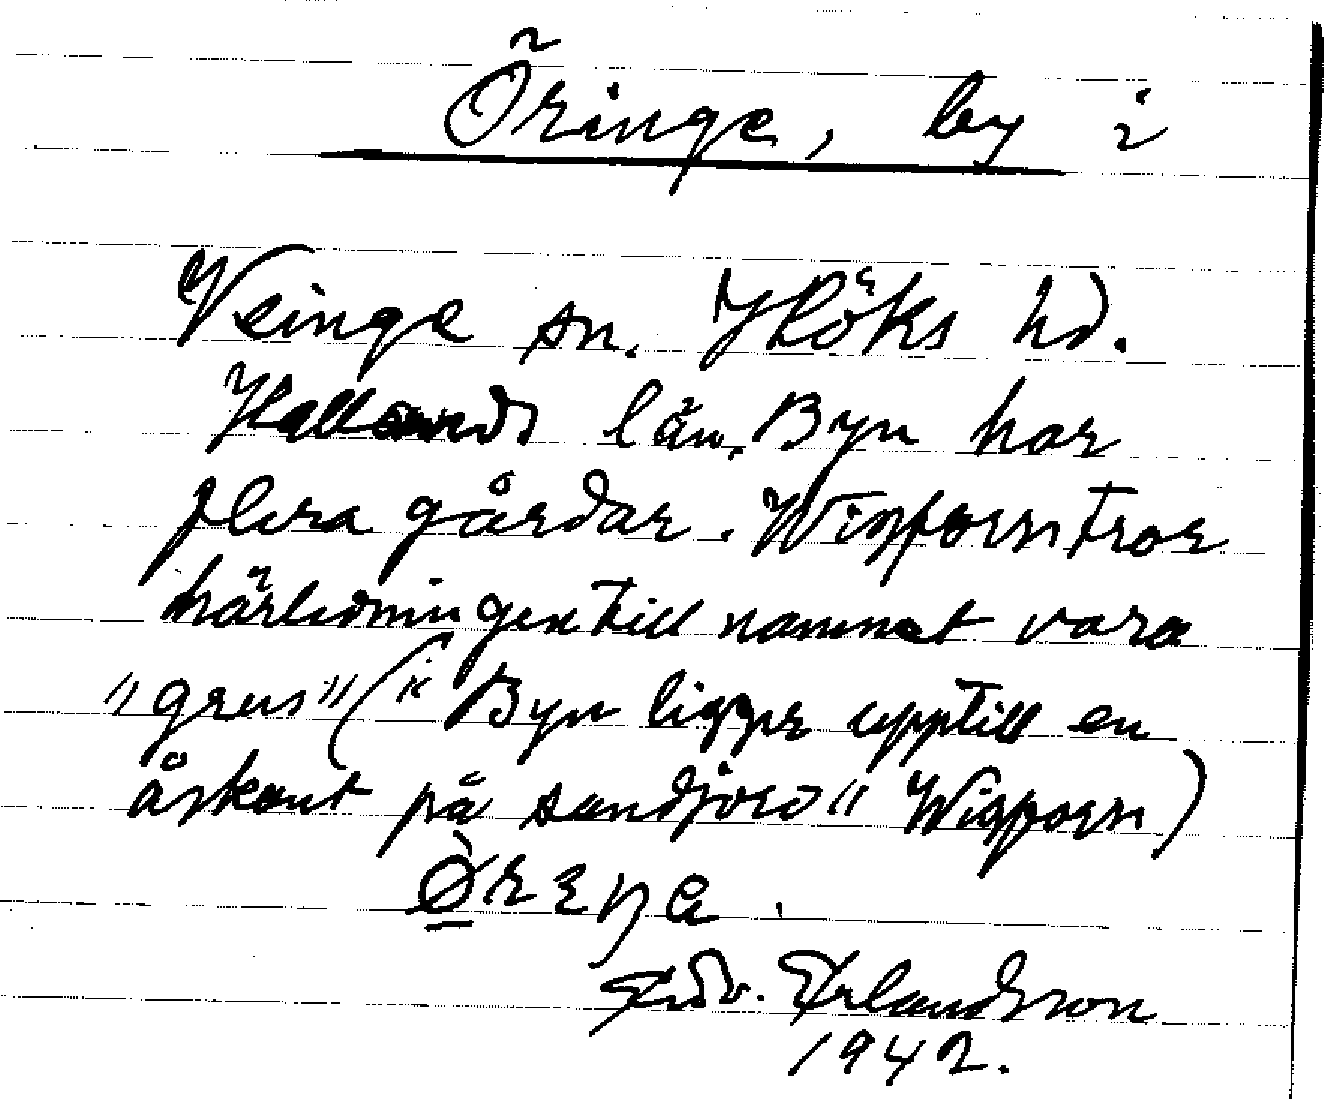 Öringe, by i
Veinge sn. Höks hd.
Hallands län. Byn har
flera gårdar. Wigforss tror
härledningen till namnet vara
"grus" ("Byn ligger upptill en
åskant på sandjord" Wigforss)
Edv. Erlandsson
1942.